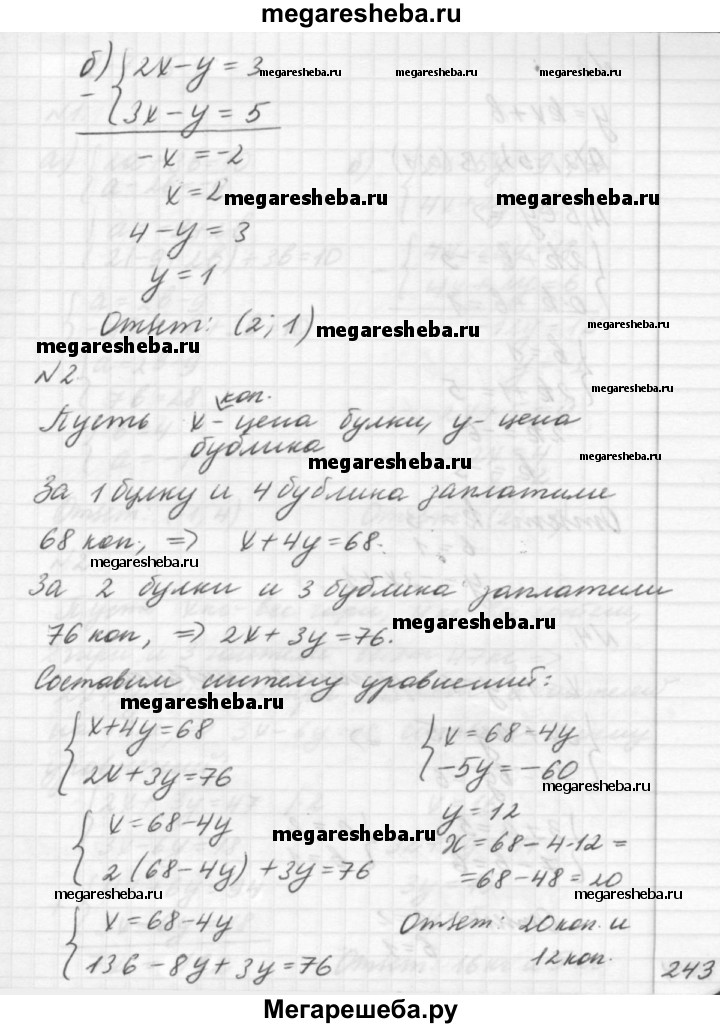 megaresheba.ru
б) {2x-y=3 megaresheba.ru megaresheba.ru megaresheba.ru
- {3x-y=5
-x=-2
x=2 megaresheba.ru megaresheba.ru
4-y=3
y=1
Ответ: (2; 1) megaresheba.ru megaresheba.ru
megaresheba.ru
№2 megaresheba.ru
коп.
Пусть x- цена булки, y- цена
бублика
megaresheba.ru megaresheba.ru
За 1 булку и 4 бублика заплатили
68 коп., => x+4y=68.
megaresheba.ru
За 2 булки и 3 бублика заплатили
76 коп, => 2x+3y=76. megaresheba.ru
Составим систему уравнений:
megaresheba.ru
{x+4y=68
{2x+3y=76
{x=68-4y
{-5y=-60
megaresheba.ru
{x=68-4y
{2(68-4y)+3y=76
megaresheba.ru
y=12
x=68-4·12=
=68-48=20
megaresheba.ru megaresheba.ru
{x=68-4y
{136-8y+3y=76
Ответ: 20коп. и
12коп.
243
Мегарешеба.ру